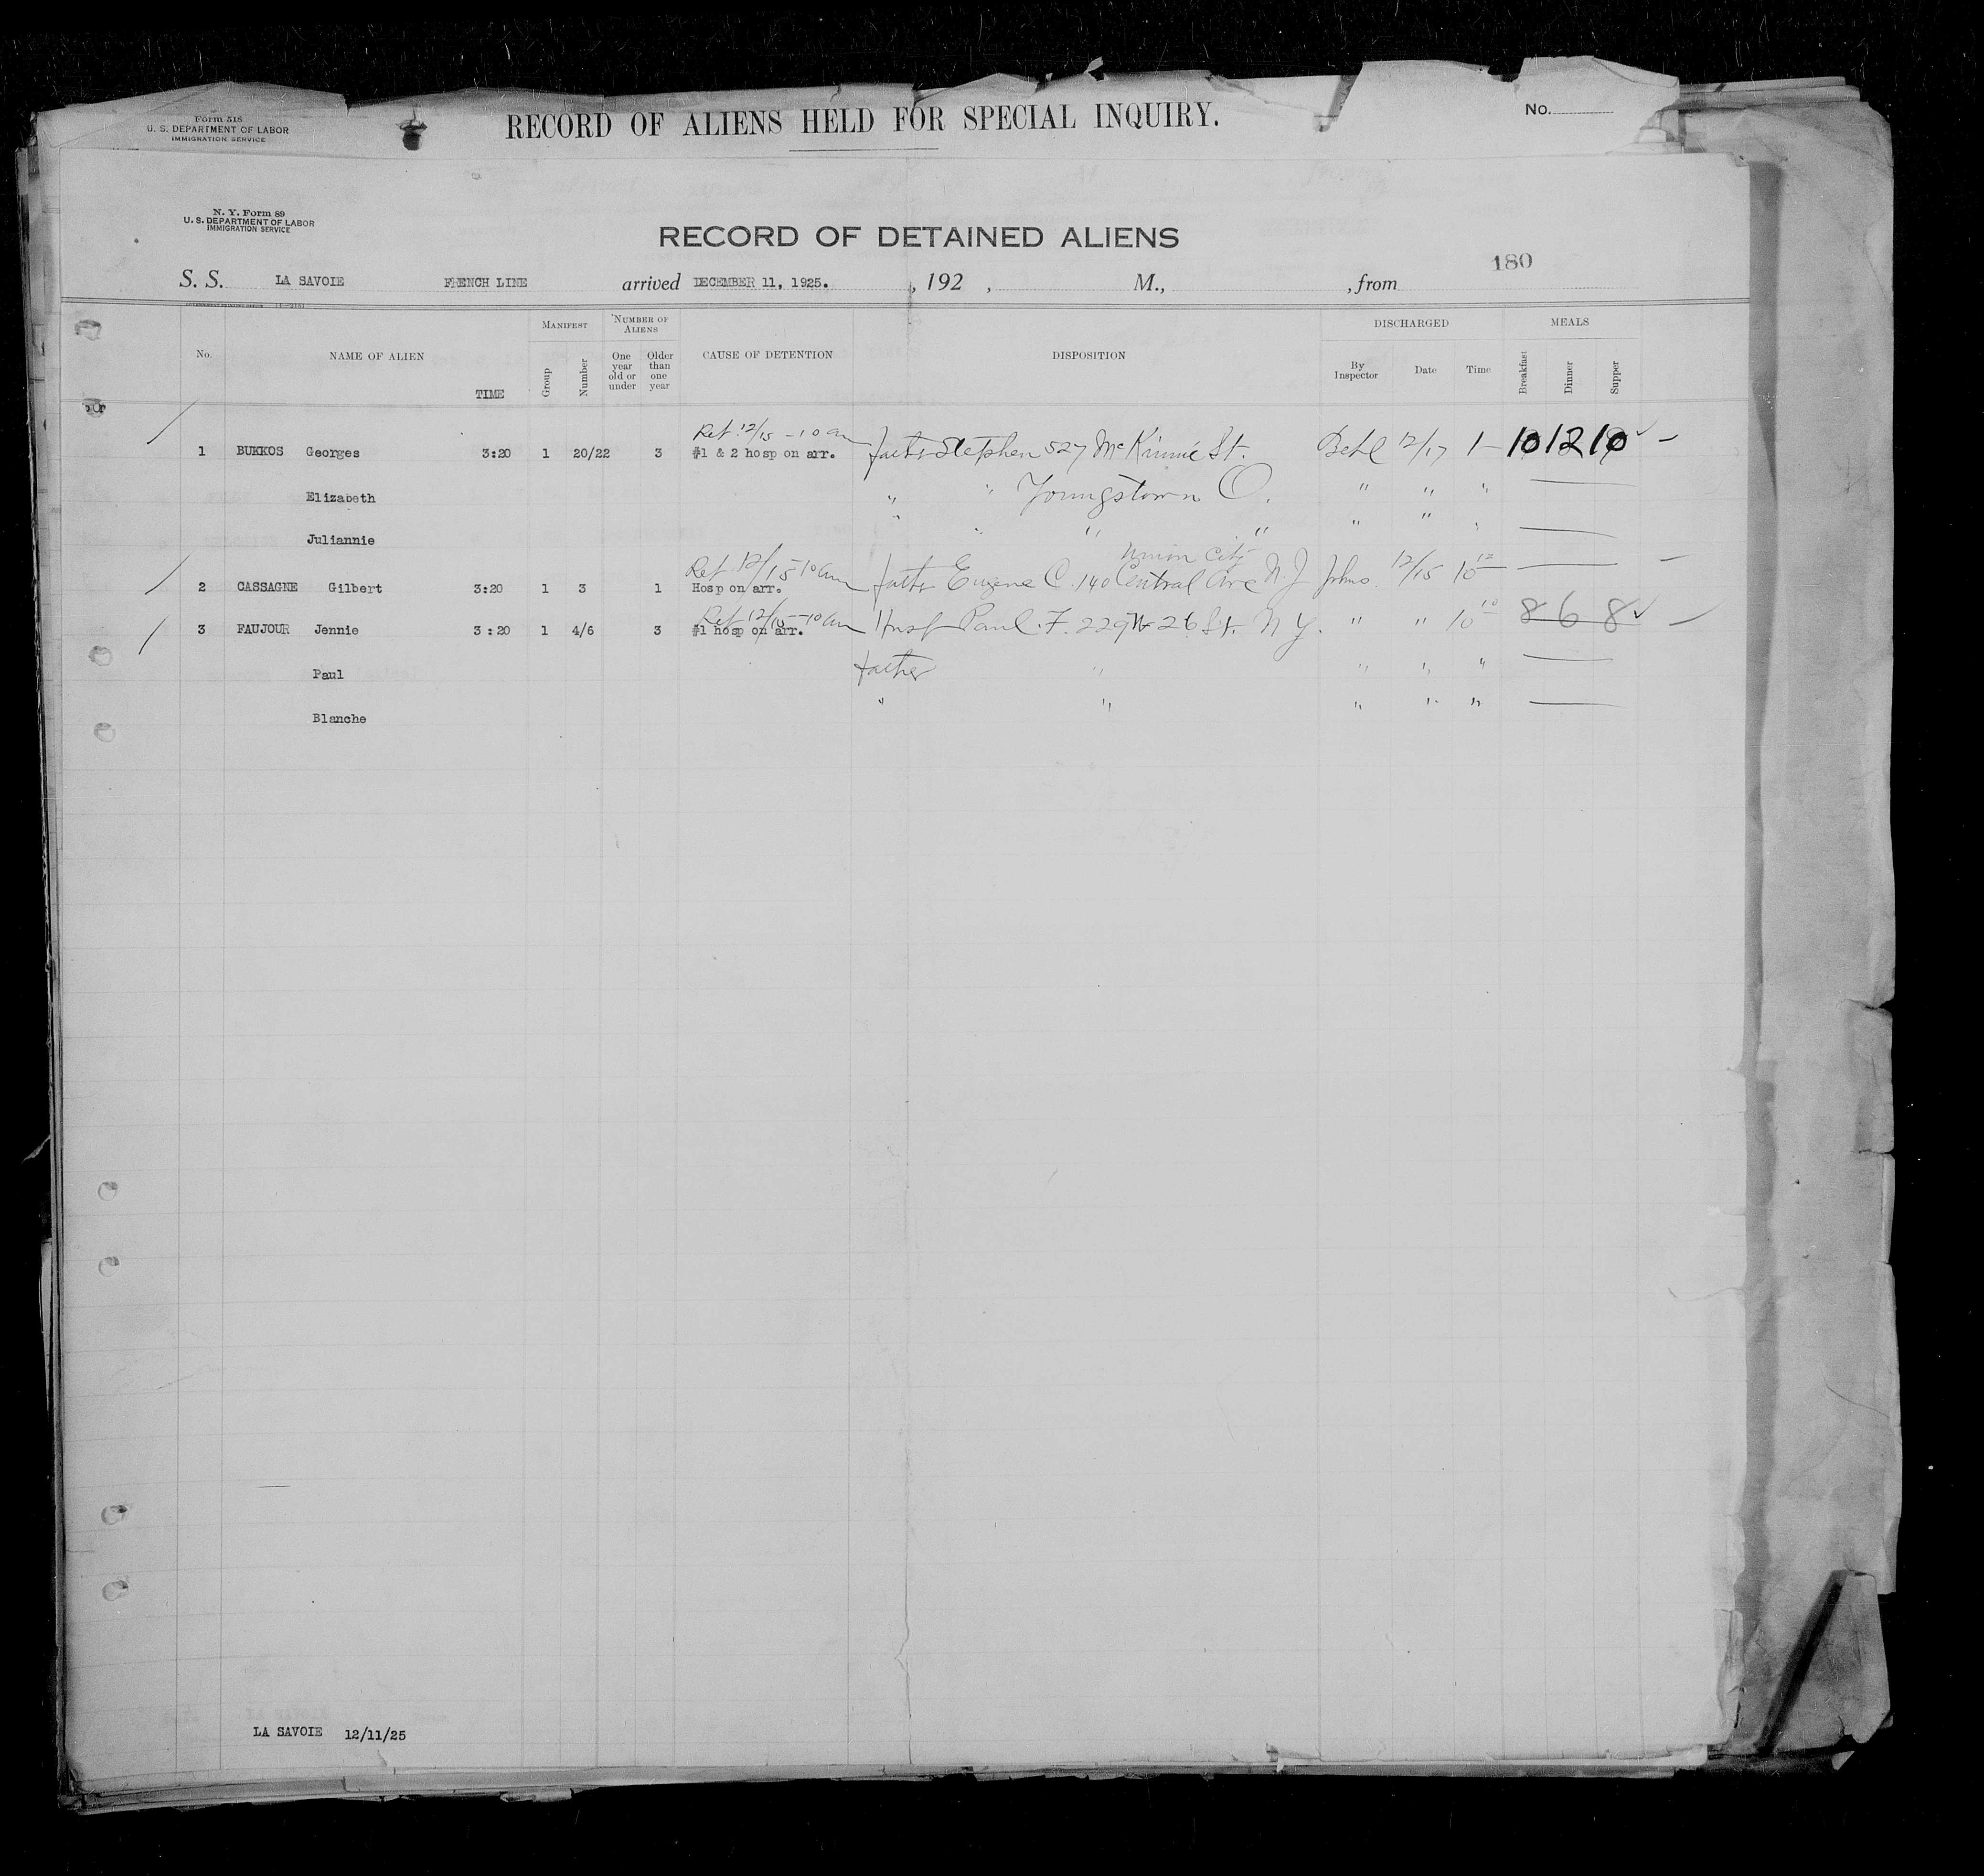 Form 518
U. S. DEPARTMENT OF LABOR
IMMIGRATION SERVICE
RECORD OF ALIENS HELD FOR SPECIAL INQUIRY.
No.
N. Y. Form 89
U. S. DEPARTMENT OF LABOR
IMMIGRATION SERVICE
RECORD OF DETAINED ALIENS
180
S. S. LA SAVOIE FRENCH LINE arrived DECEMBER 11, 1925. , 192 , M., , from
No. NAME OF ALIEN TIME MANIFEST Group Number NUMBER OF ALIENS One year old or under Older than one year CAUSE OF DETENTION DISPOSITION DISCHARGED By Inspector Date Time MEALS Breakfast Dinner Supper
Ret 12/15 - 10 am
1 BUKKOS Georges 3:20 1 20/22 3 #1 & 2 hosp on arr. father Stephen 527 McKinnie St. 12/17 1 — 10 12 10 ✓ —
Elizabeth " " Youngstown O. " " "
Juliannie " " " " " " "
Ret 12/15 10 am Union City
2 CASSAGNE Gilbert 3:20 1 3 1 Hosp on arr. father Eugene C. 140 Central Ave N. J Johns. 12/15 10 12
Ret 12/15 - 10 am
3 FAUJOUR Jennie 3:20 1 4/6 3 #1 hosp on arr. Husb Paul F. 229 W 26 St. N Y. " " 10 10 8 6 8 ✓ —
Paul father " " " "
Blanche " " " " "
LA SAVOIE 12/11/25